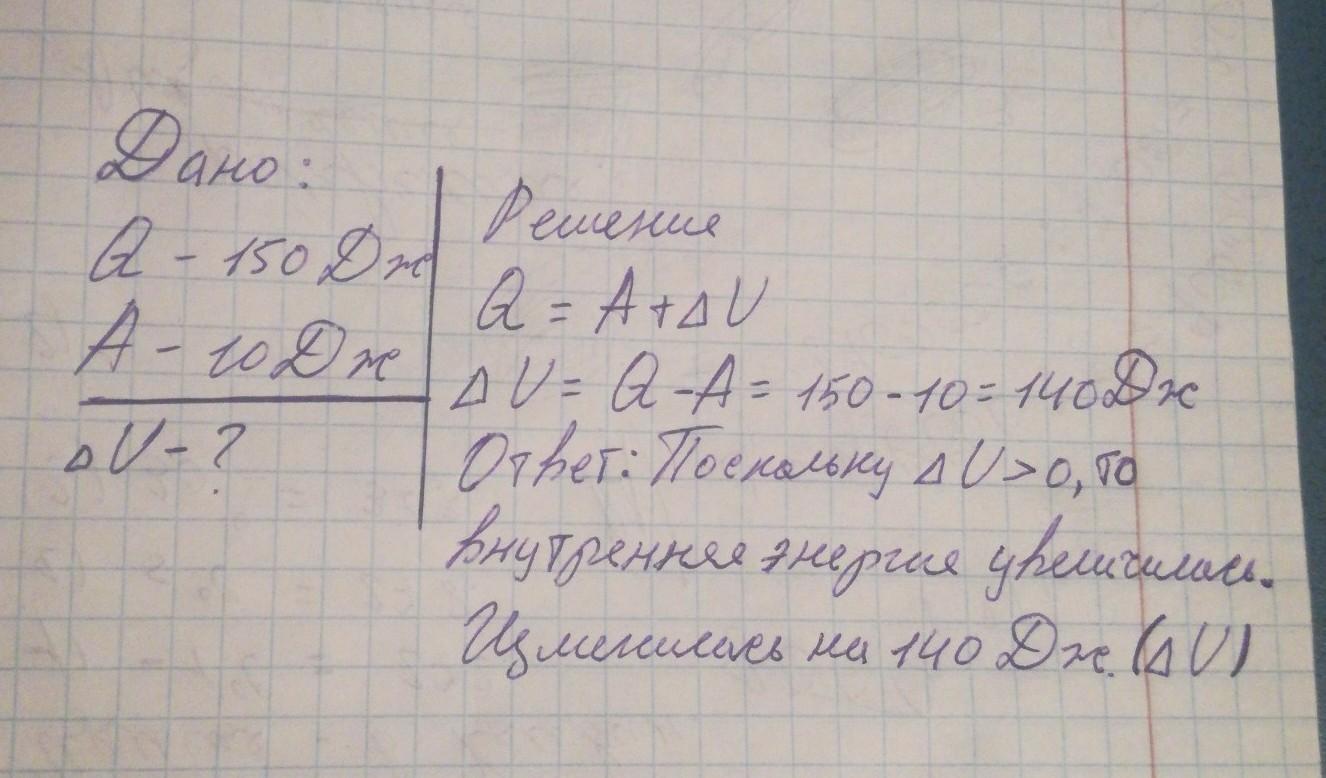 Дано:
Q - 150 Дж
A - 10 Дж
ΔU - ?
Решение
Q = A + ΔU
ΔU = Q - A = 150 - 10 = 140 Дж
Ответ: Поскольку ΔU > 0, то
внутренняя энергия увеличилась.
Изменилась на 140 Дж. (ΔU)